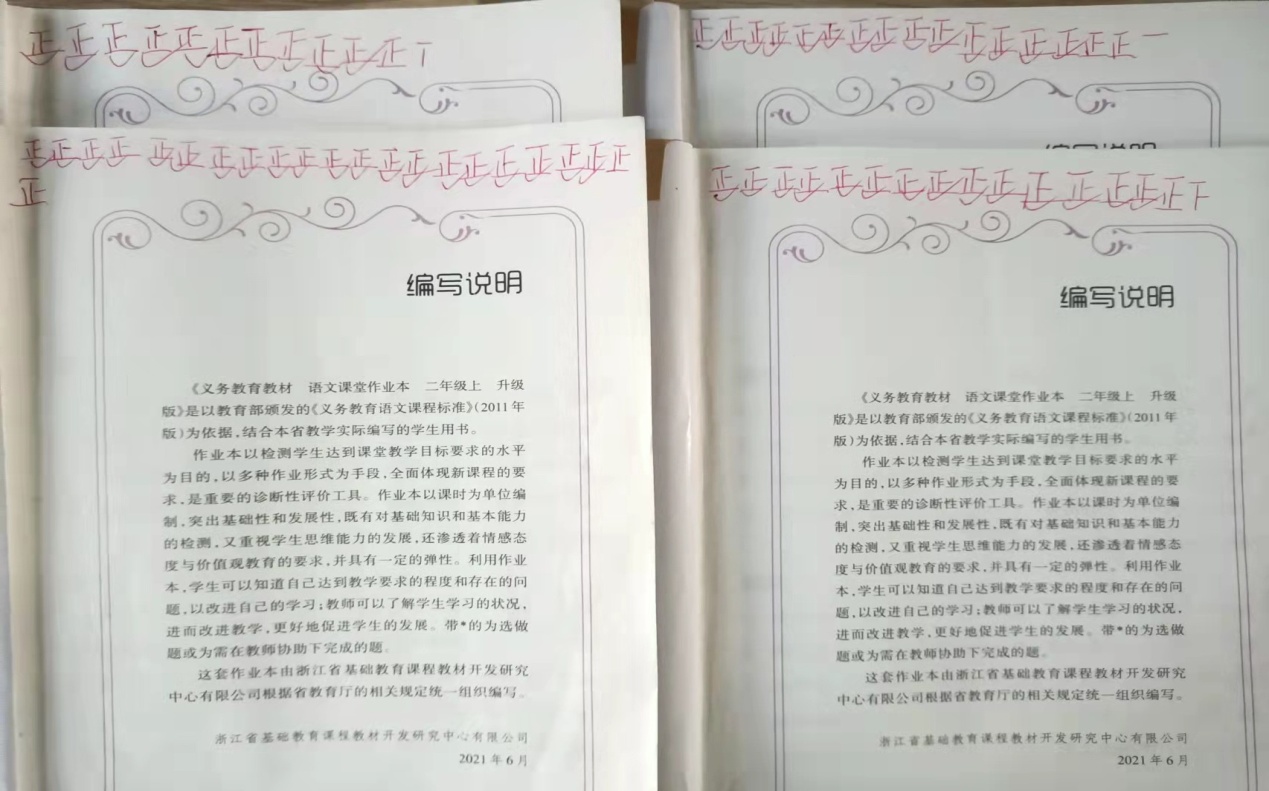 正正正正正正正正正正正丅
正正正正正正正正正正正正正正正正一
正正正正正正正正正正正正正正正正正正正正正
正
编写说明
《义务教育教材 语文课堂作业本 二年级上 升级
版》是以教育部颁发的《义务教育语文课程标准》(2011年
版)为依据,结合本省教学实际编写的学生用书。
作业本以检测学生达到课堂教学目标要求的水平
为目的,以多种作业形式为手段,全面体现新课程的要
求,是重要的诊断性评价工具。作业本以课时为单位编
制,突出基础性和发展性,既有对基础知识和基本能力
的检测,又重视学生思维能力的发展,还渗透着情感态
度与价值观教育的要求,并具有一定的弹性。利用作业
本,学生可以知道自己达到教学要求的程度和存在的问
题,以改进自己的学习;教师可以了解学生学习的状况,
进而改进教学,更好地促进学生的发展。带*的为选做
题或为需在教师协助下完成的题。
这套作业本由浙江省基础教育课程教材开发研究
中心有限公司根据省教育厅的相关规定统一组织编写。
浙江省基础教育课程教材开发研究中心有限公司
2021年6月
正正正正正正正正正正正正正正正丅
编写说明
《义务教育教材 语文课堂作业本 二年级上 升级
版》是以教育部颁发的《义务教育语文课程标准》(2011年
版)为依据,结合本省教学实际编写的学生用书。
作业本以检测学生达到课堂教学目标要求的水平
为目的,以多种作业形式为手段,全面体现新课程的要
求,是重要的诊断性评价工具。作业本以课时为单位编
制,突出基础性和发展性,既有对基础知识和基本能力
的检测,又重视学生思维能力的发展,还渗透着情感态
度与价值观教育的要求,并具有一定的弹性。利用作业
本,学生可以知道自己达到教学要求的程度和存在的问
题,以改进自己的学习;教师可以了解学生学习的状况,
进而改进教学,更好地促进学生的发展。带*的为选做
题或为需在教师协助下完成的题。
这套作业本由浙江省基础教育课程教材开发研究
中心有限公司根据省教育厅的相关规定统一组织编写。
浙江省基础教育课程教材开发研究中心有限公司
2021年6月